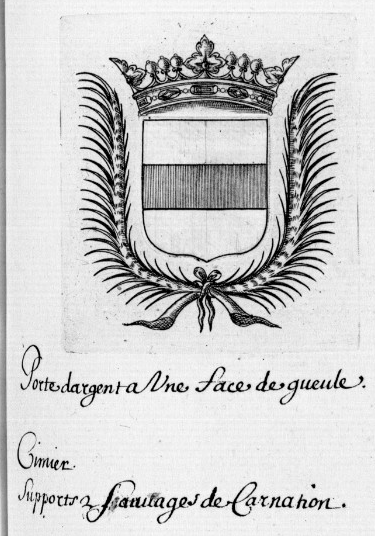 Porte dargent a Vne face de gueule.
Cimier.
Supports 2 Sauuages de Carnation.